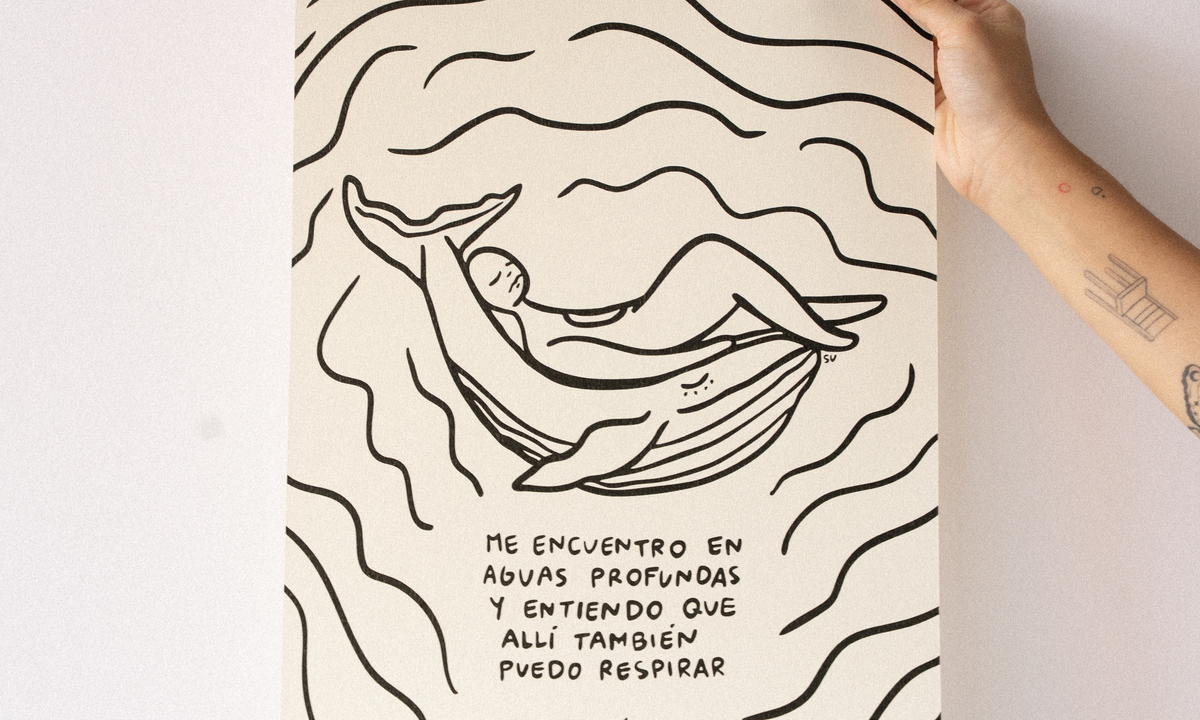 SU
ME ENCUENTRO EN
AGUAS PROFUNDAS
Y ENTIENDO QUE
ALLÍ TAMBIÉN
PUEDO RESPIRAR